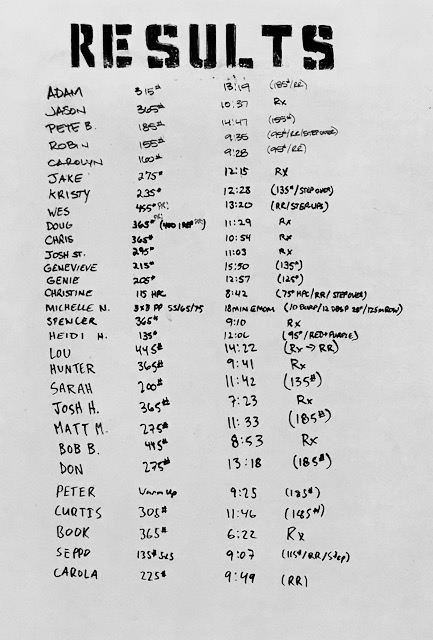 RESULTS
ADAM 315# 13:19 (185#/RR)
JASON 365# 10:37 Rx
PETE B. 185# 14:47 (155#)
ROBIN 155# 9:35 (95#/RR/STEPOVER)
CAROLYN 160# 9:28 (95#/RR)
JAKE 275# 12:15 RX
KRISTY 235# 12:28 (135#/STEPOVER)
WES 455# PR! 13:20 (RR/STEPUPS)
DOUG 365# PR! 11:29 Rx
CHRIS 365# 10:54 Rx
JOSH ST. 295# 11:03 Rx
GENEVIEVE 215# 15:50 (135#)
GENIE 205# 12:57 (125#)
CHRISTINE 115 HPC 8:42 (75# HPC/RR/STEPOVER)
MICHELLE N. 8x3 PP 55/65/75 18MINEMOM
SPENCER 365# 9:10 Rx
HEIDI H. 135# 12:06 (95#/RED+PURPLE)
LOU 445# 14:22 (Rx → RR)
HUNTER 365# 9:41 Rx
SARAH 200# 11:42 (135#)
JOSH H. 365# 7:23 Rx
MATT M. 275# 11:33 (185#)
BOB B. 445# 8:53 Rx
DON 275# 13:18 (185#)
PETER Warm Up 9:25 (185#)
CURTIS 305# 11:46 (165#)
BOOK 365# 6:22 Rx
SEPPO 135# 5x5 9:07 (115#/RR/Step)
CAROLA 225# 9:49 (RR)